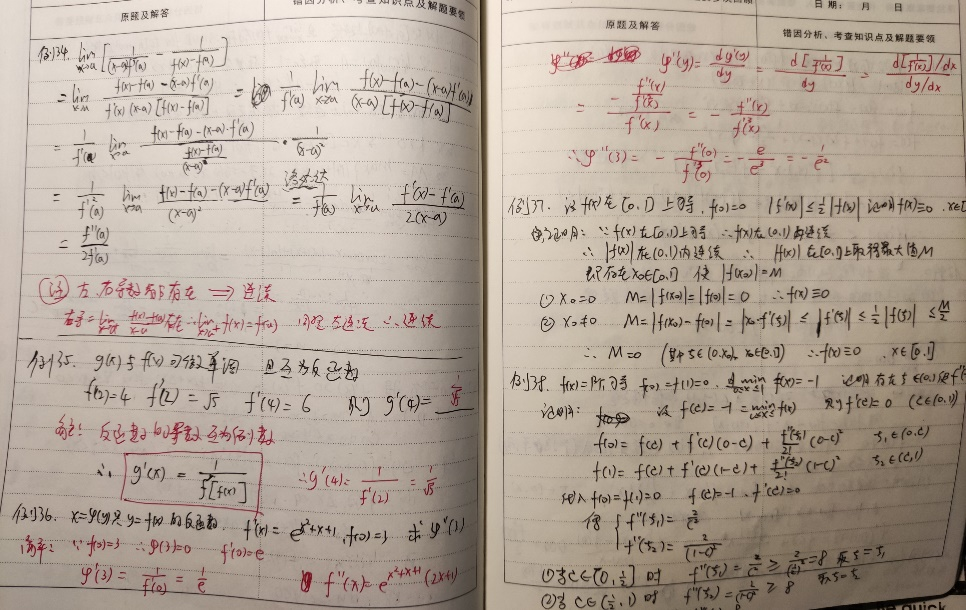 原题及解答
错因分析、考查知识点及解题要领
例134. lim x→a [1/((x-a)f'(a)) - 1/(f(x)-f(a))]
= lim x→a (f(x)-f(a)-(x-a)f'(a))/(f'(a)(x-a)[f(x)-f(a)]) = 1/f'(a) lim x→a (f(x)-f(a)-(x-a)f'(a))/((x-a)[f(x)-f(a)])
= 1/f'(a) lim x→a (f(x)-f(a)-(x-a)·f'(a))/((f(x)-f(a))/(x-a)) · 1/(x-a)²
= 1/f'²(a) lim x→a (f(x)-f(a)-(x-a)f'(a))/(x-a)² 洛必达 = 1/f'(a) lim x→a (f'(x)-f'(a))/(2(x-a))
= f''(a)/2f'(a)
注 左、右导数都存在 ⟹ 连续
同理左连续 ∴连续
例135. g(x)与f(x)可微单调 且互为反函数
f(2)=4 f'(2)=√5 f'(4)=6 则 g'(4)= 1/√5
反函数的导数互为倒数
∴ g'(x) = 1/f'[f(x)] ∴g'(4)= 1/f'(2) = 1/√5
例136. x=φ(y)是y=f(x)的反函数. f'(x)=e^(x²+x+1), f(0)=3 求φ''(3)
解: ∵f(0)=3 ∴φ(3)=0 f'(0)=e
φ'(3)= 1/f'(0) = 1/e f''(x)=e^(x²+x+1)(2x+1)
日期: 月 日
原题及解答
错因分析、考查知识点及解题要领
φ''(y)= dφ'(y)/dy = d[1/f'(x)]/dy = d[1/f'(x)]/dx / dy/dx
= -(f''(x)/f'²(x))/f'(x) = -f''(x)/f'³(x)
∴φ''(3)= -f''(0)/f'³(0) = -e/e³ = -1/e²
例137. 设f(x)在[0,1]上可导, f(0)=0 |f'(x)|≤½|f(x)| 证明f(x)≡0. x∈[
证明: ∵f(x)在[0,1]上可导 ∴f(x)在[0,1]内连续
∴|f(x)|在[0,1]内连续 ∴|f(x)|在[0,1]上取得最大值M
即存在x₀∈[0,1] 使|f(x₀)|=M
① x₀=0 M=|f(x₀)|=|f(0)|=0 ∴f(x)≡0
② x₀≠0 M=|f(x₀)-f(0)|=|x₀·f'(ξ)|≤|f'(ξ)|≤½|f(ξ)|≤M/2
∴ M=0 (其中ξ∈(0,x₀), x₀∈[0,1]) ∴f(x)≡0 x∈[0,1]
例138. f(x)二阶可导 f(0)=f(1)=0. min 0≤x≤1 f(x)=-1 证明存在ξ∈(0,1)使f''(
证明: 设f(c)=-1=min 0≤x≤1 f(x) 则f'(c)=0 (c∈(0,1))
f(0)=f(c)+f'(c)(0-c)+f''(ξ₁)/2!(0-c)² ξ₁∈(0,c)
f(1)=f(c)+f'(c)(1-c)+f''(ξ₂)/2!(1-c)² ξ₂∈(c,1)
代入f(0)=f(1)=0 f(c)=-1. f'(c)=0
得 { f''(ξ₁)=2/c²
f''(ξ₂)=2/(1-c)²
①当c∈(0,½]时 f''(ξ₁)=2/c²≥2/(½)²=8 取ξ=ξ₁
②当c∈(½,1)时 f''(ξ₂)=2/(1-c)²≥8 取ξ=ξ₂
quick